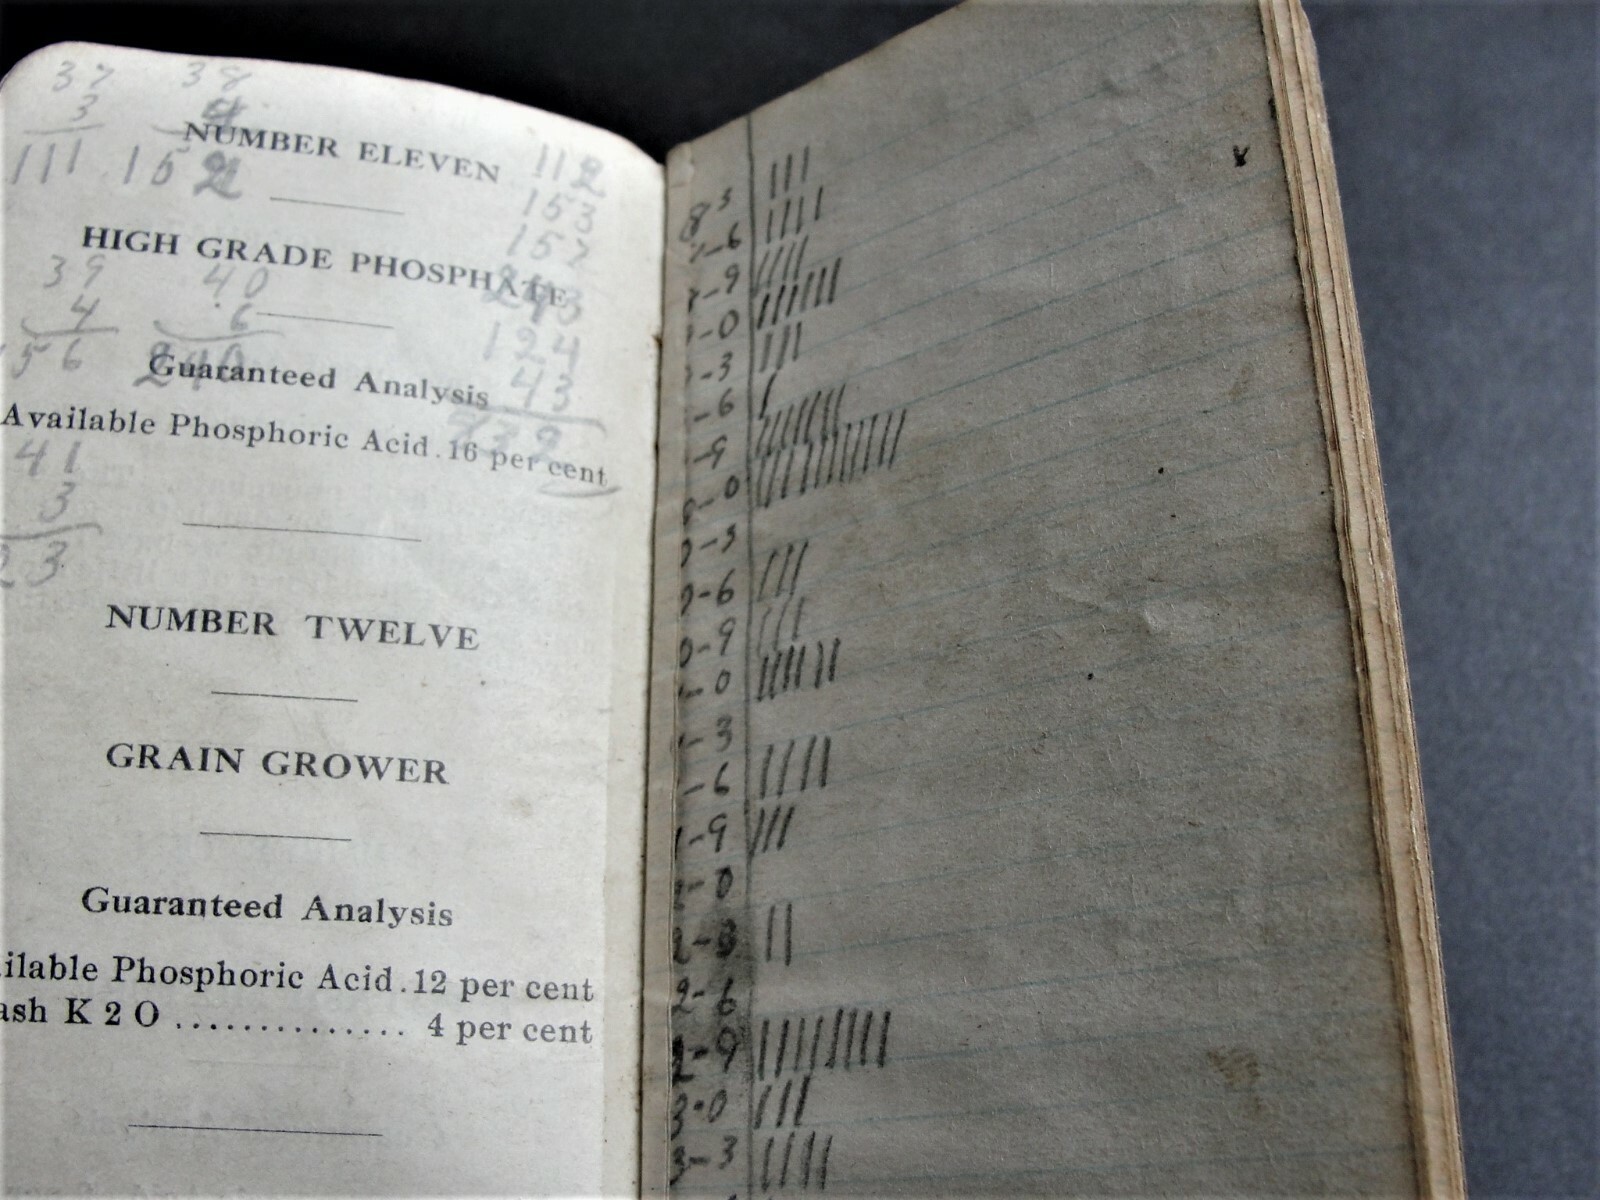 37 38
3 4
111 152
NUMBER ELEVEN
112
153
157
HIGH GRADE PHOSPHATE
39 40
4 6
56 240
124
43
Guaranteed Analysis
Available Phosphoric Acid. 16 per cent
41
3
23
NUMBER TWELVE
GRAIN GROWER
Guaranteed Analysis
ilable Phosphoric Acid. 12 per cent
ash K 2 O .............. 4 per cent
-6 ||||
-9 ||||
-0
-3 |||
-6 |
-9
-0
-3
-6 |||
-9 |||
-0
-3
-6 ||||
-9 |||
-0
2-3 ||
2-6
2-9
3-0 |||
3-3 ||||